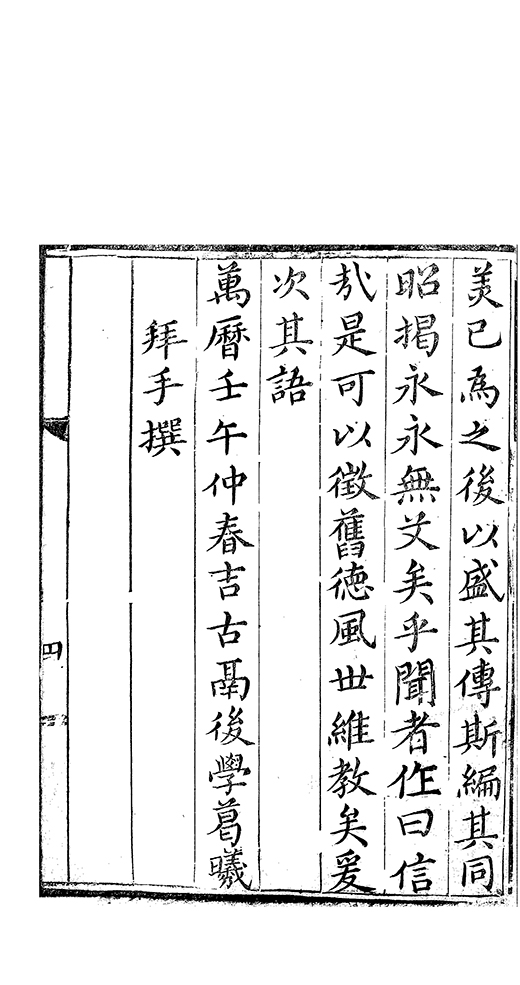 美已為之後以盛其傳斯編其同
昭揭永永無艾矣乎聞者作曰信
哉是可以徵舊德風世維教矣爰
次其語
萬曆壬午仲春吉古鬲後學葛曦
拜手撰
四